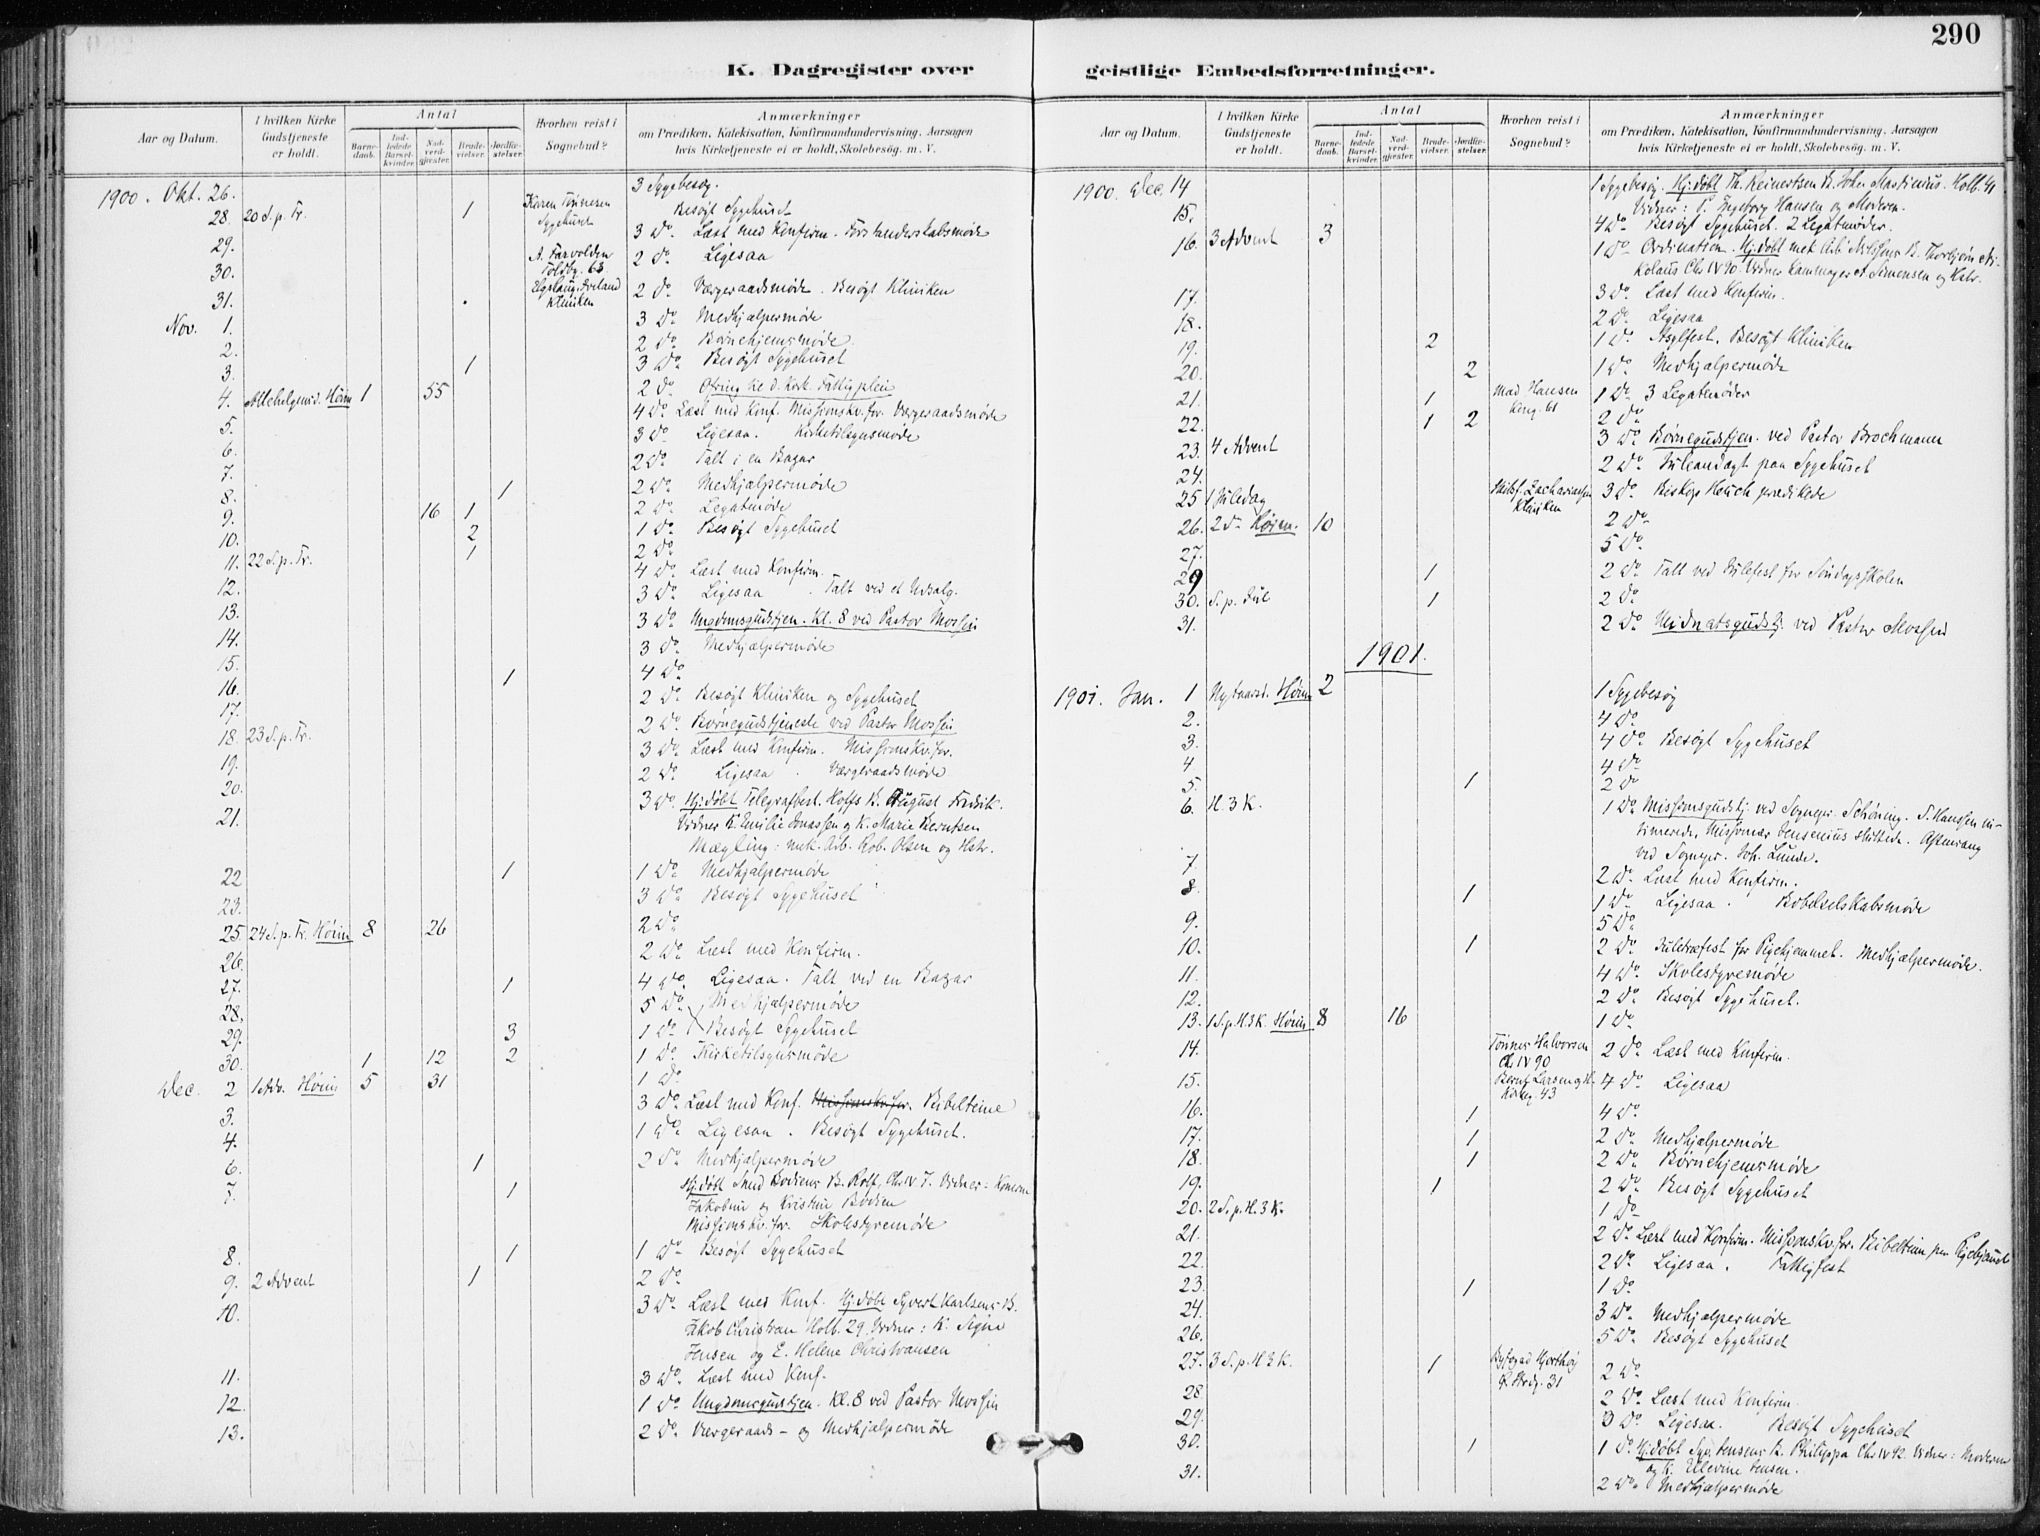 290
K. Dagregister over geistlige Embedsforretninger.
Aar og Datum. I hvilken Kirke Gudstjeneste er holdt. Antal Barnedaab. Indledede Barselkvinder. Nadverdgjester. Brudevielser. Jordfæstelser. Hvorhen reist i Sognebud? Anmærkninger om Prædiken, Katekisation, Konfirmandundervisning, Aarsagen hvis Kirketjeneste ei er holdt, Skolebesøg. m. V.
1900. Okt. 26. 3 Sygebesøg.
28. 20 S. p. Tr. 1 Karen Tønnesen Sygehuset Besøgt Sygehuset
29. 3 Do. Læst med Konfirm. Forstanderskabsmøde
30. A. Farvolden 63 2 Do. Ligesaa
31. Kliniken 2 Do. Værgeraadsmøde. Besøgt Kliniken
Nov. 1. 3 Do. Medhjælpermøde
2. 2 Do. Børnehjemsmøde
3. 1 3 Do. Besøgt Sygehuset
4. Allehelgensd. Høim 1 55 2 Do.
5. 4 Do. Læst med Konf. Missionskv. for. Værgeraadsmøde
6. 3 Do. Ligesaa. Kirketilsynsmøde
7. 2 Do. Talt i en Bazar
8. 1 2 Do. Medhjælpermøde
9. 16 1 2 Do. Legatmøde
10. 2 1 Do. Besøgt Sygehuset
11. 22 S. p. Tr. 1 2 Do.
12. 4 Do. Læst med Konfirm.
13. 3 Do. Ligesaa. Talt ved et Udsalg.
14. 3 Do. Ungdomsgudstjen. Kl. 8 ved Pastor Mossin
15. 3 Do. Medhjælpermøde
16. 1 4 Do.
17. 2 Do. Besøgt Kliniken og Sygehuset
18. 23 S. p. Tr. 2 Do. Børnegudstjeneste ved Pastor Mossin
19. 3 Do. Læst med Konfirm. Missionskv. for.
20. 2 Do. Ligesaa. Værgeraadsmøde
21. 3 Do. Hj. døbt Telegrafbest. Hoffs B. August Fredrik.
Vidner K. Emilie Jonassen og K. Marie Berntsen
Mægling: mek. Arb. Rob. Olsen og Hstr.
22 1 1 Do. Medhjælpermøde
23. 3 Do. Besøgt Sygehuset
25. 24 S. p. Tr. Høim 8 26 2 Do.
26. 2 Do. Læst med Konfirm.
27. 1 4 Do. Ligesaa. Talt ved en Bazar
28. 5 Do. Medhjælpermøde
29. 3 1 Do. Besøgt Sygehuset
30. 1 12 2 1 Do. Kirketilsynsmøde
Dec. 2 1 Adv. Høim 5 31 1 Do.
3. 3 Do. Læst med Konf. Missionskv. for. Bibeltime
4. 1 Do. Ligesaa. Besøgt Sygehuset.
6. 1 2 Do. Medhjælpermøde
7. 1 Hj. døbt Smed Bodiens B. Rolf, Chs IV 7. Vidner: Konerne
Jakobine og Kristine Bodien
Missionskv. for. Skolestyremøde
8. 1 1 Do. Besøgt Sygehuset
9. 2 Advent 1 2 Do.
10. 3 Do. Læst med Konf. Hj. døbt Syvert Karlsens B.
Jakob Christian Holb. 29. Vidner: K. Signe
Jensen og E. Helene Christiansen
11. 3 Do. Læst med Konf.
12. 1 Do. Ungdomsgudstjen. Kl. 8 ved Pastor Mossin
13. 2 Do. Værgeraads- og Medhjælpermøde
Aar og Datum. I hvilken Kirke Gudstjeneste er holdt. Antal Barnedaab. Indledede Barselkvinder. Nadverdgjester. Brudevielser. Jordfæstelser. Hvorhen reist i Sognebud? Anmærkninger om Prædiken, Katekisation, Konfirmandundervisning, Aarsagen hvis Kirketjeneste ei er holdt, Skolebesøg. m. V.
1900. Dec. 14 1 Sygebesøg. Hj. døbt Th. Reinertsen B. John Martinius. Holb. 41
Vidner: P. Ingeborg Hansen og Moderen.
15. 4 Do. Besøgt Sygehuset. 2 Legatmøder.
16. 3 Advent 3 1 Do. Ordination. Hj. døbt mek. Arb. Nilsens B. Thorbjørn
Chs IV 90. Vidner Simonsen og Hstr.
17. 3 Do. Læst med Konfirm.
18. 2 Do. Ligesaa
19. 2 1 Do. Asylfest. Besøgt Kliniken
20. 2 1 Do. Medhjælpermøde
21. 1 Mad Hansen Kong. 61 1 Do. 3 Legatmøder
22. 1 2 2 Do.
23. 4 Advent 3 Do. Børnegudstjen. ved Pastor Brochmann
24. 2 Do. Juleandagt paa Sygehuset
25 1 Juledag Zachariassen Kliniken 3 Do. Biskop Heuch prædikede
26. 2 Do. Høim. 10 2 Do.
27. 5 Do.
29 1 2 Do. Talt ved Julefest for Søndagsskolen
30. S. p. Jul 1 2 Do.
31. 2 Do. Midnatsgudstj. ved Pastor Mossin
1901.
1901. Jan. 1 Nytaarsd. Høim 2 1 Sygebesøg
2. 4 Do.
3. 4 Do. Besøgt Sygehuset
4 4 Do.
5. 1 2 Do.
6. H. 3 K. 1 Do. Missionsgudstj. ved Sognepr. Schøning. T. Hansen in-
timerede, Missionær Jensenius skiftede. Aftensang
ved Sognepr. Joh. Lunde.
7 2 Do. Læst med Konfirm.
8. 1 1 Do. Ligesaa. Bibelselskabsmøde
9. 5 Do.
10. 1 2 Do. Juletræfest for Pigehjemmet. Medhjælpermøde.
11. 4 Do. Skolestyremøde
12. 2 Do. Besøgt Sygehuset.
13. 1 S. p. H. 3 K. Høim 8 16 1 Do.
14. Tønnes Halvorsen Chs IV 90 2 Do. Læst med Konfirm.
15. Bernt Larsen Kirkeg. 43 4 Do. Ligesaa
16. 1 4 Do.
17. 1 2 Do. Medhjælpermøde
18. 1 2 Do. Børnehjemsmøde
19. 1 2 Do. Besøgt Sygehuset
20. 2 S. p. H. 3 K. 1 Do.
21. 2 Do. Læst med Konfirm. Missionskv. for. Bibeltime paa Pigehjemmet
22. 2 Do. Ligesaa. Fattigfest
23. 1 1 Do.
24. 3 Do. Medhjælpermøde
26. 5 Do. Besøgt Sygehuset
27. 3 S. p. H. 3 K. 1 Byfoged 31 2 Do.
28 2 Do. Læst med Konfirm.
29. 3 Do. Ligesaa. Besøgt Sygehuset
30. 1 1 Do. Hj. døbt Jensens B. Philippa Chs IV 92. Vidner: Moderen
og K. Ellevine Jensen.
31. 2 Do. Medhjælpermøde